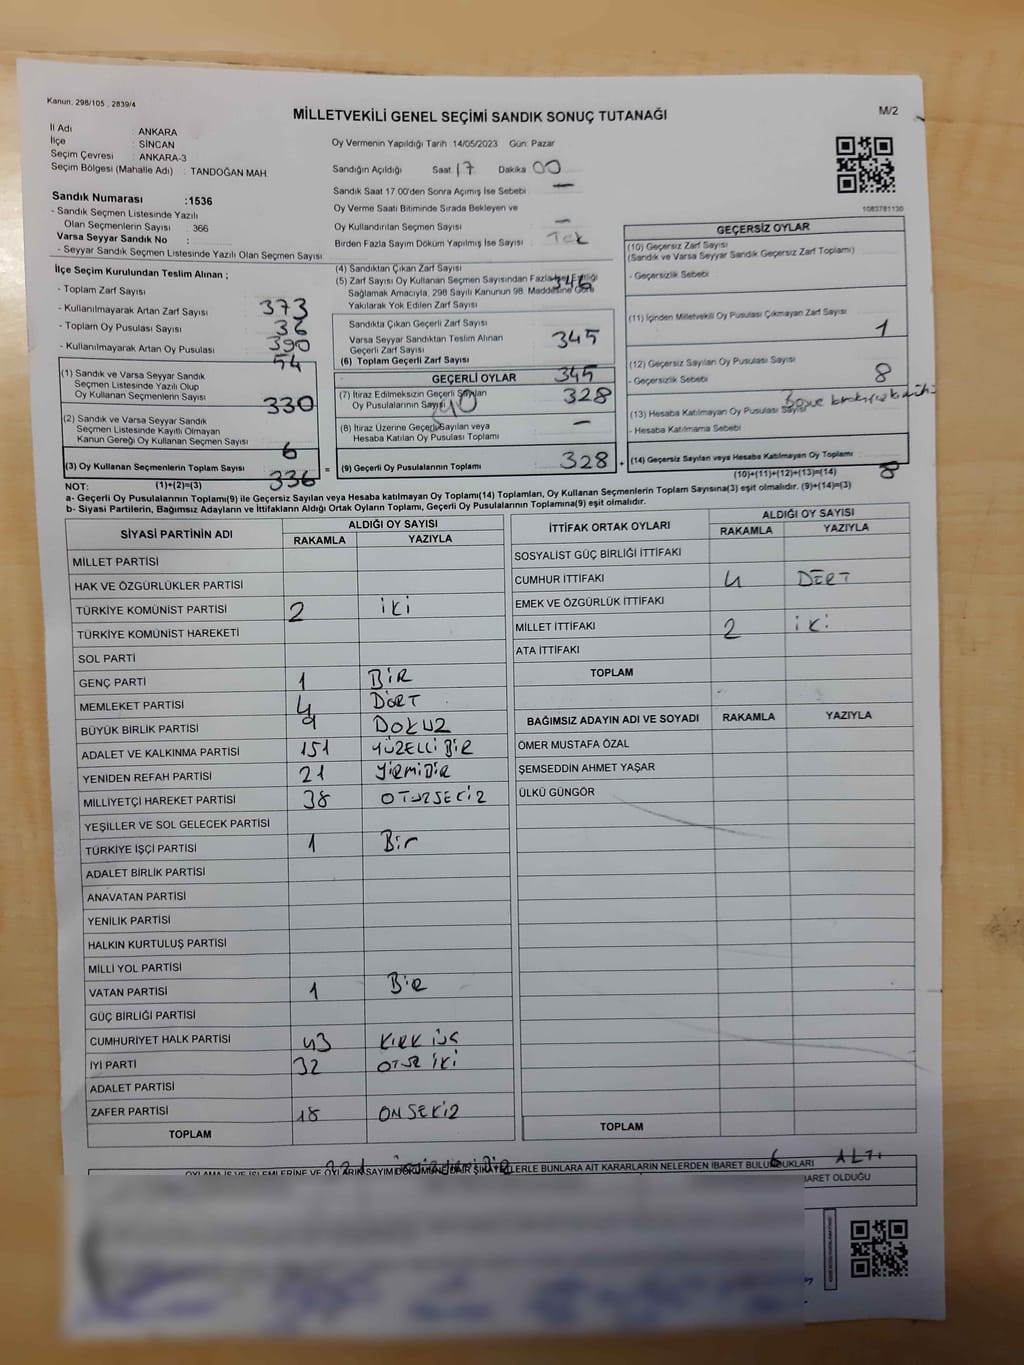 Kanun: 298/105 , 2839/4
MİLLETVEKİLİ GENEL SEÇİMİ SANDIK SONUÇ TUTANAĞI
M/2
İl Adı : ANKARA
İlçe : SİNCAN
Seçim Çevresi : ANKARA-3
Seçim Bölgesi (Mahalle Adı) : TANDOĞAN MAH.
Sandık Numarası :1536
- Sandık Seçmen Listesinde Yazılı
Olan Seçmenlerin Sayısı : 366
Varsa Seyyar Sandık No :
- Seyyar Sandık Seçmen Listesinde Yazılı Olan Seçmen Sayısı:
Oy Vermenin Yapıldığı Tarih 14/05/2023 Gün: Pazar
Sandığın Açıldığı Saat 17 Dakika 00
Sandık Saat 17:00'den Sonra Açılmış İse Sebebi : —
Oy Verme Saati Bitiminde Sırada Bekleyen ve
Oy Kullandırılan Seçmen Sayısı : —
Birden Fazla Sayım Döküm Yapılmış İse Sayısı : Tek
1083781130
İlçe Seçim Kurulundan Teslim Alınan ;
- Toplam Zarf Sayısı : 373
- Kullanılmayarak Artan Zarf Sayısı : 36
- Toplam Oy Pusulası Sayısı : 390
- Kullanılmayarak Artan Oy Pusulası : 54
(1) Sandık ve Varsa Seyyar Sandık
Seçmen Listesinde Yazılı Olup
Oy Kullanan Seçmenlerin Sayısı : 330
(2) Sandık ve Varsa Seyyar Sandık
Seçmen Listesinde Kayıtlı Olmayan
Kanun Gereği Oy Kullanan Seçmen Sayısı : 6
(3) Oy Kullanan Seçmenlerin Toplam Sayısı : 336
(4) Sandıktan Çıkan Zarf Sayısı : 346
(5) Zarf Sayısı Oy Kullanan Seçmen Sayısından Fazla İse Eşitliği
Sağlamak Amacıyla, 298 Sayılı Kanunun 98. Maddesine Göre
Yakılarak Yok Edilen Zarf Sayısı
Sandıkta Çıkan Geçerli Zarf Sayısı : 345
Varsa Seyyar Sandıktan Teslim Alınan
Geçerli Zarf Sayısı
(6) Toplam Geçerli Zarf Sayısı : 345
GEÇERLİ OYLAR
(7) İtiraz Edilmeksizin Geçerli Sayılan
Oy Pusulalarının Sayısı : 328
(8) İtiraz Üzerine Geçerli Sayılan veya
Hesaba Katılan Oy Pusulası Toplamı : —
= (9) Geçerli Oy Pusulalarının Toplamı : 328 +
GEÇERSİZ OYLAR
(10) Geçersiz Zarf Sayısı :
(Sandık ve Varsa Seyyar Sandık Geçersiz Zarf Toplamı)
- Geçersizlik Sebebi :
(11) İçinden Milletvekili Oy Pusulası Çıkmayan Zarf Sayısı : 1
(12) Geçersiz Sayılan Oy Pusulası Sayısı : 8
- Geçersizlik Sebebi :
(13) Hesaba Katılmayan Oy Pusulası Sayısı :
- Hesaba Katılmama Sebebi :
(14) Geçersiz Sayılan veya Hesaba Katılmayan Oy Toplamı : 8
(10)+(11)+(12)+(13)=(14)
NOT: (1)+(2)=(3)
a- Geçerli Oy Pusulalarının Toplamı(9) ile Geçersiz Sayılan veya Hesaba katılmayan Oy Toplamı(14) Toplamları, Oy Kullanan Seçmenlerin Toplam Sayısına(3) eşit olmalıdır. (9)+(14)=(3)
b- Siyasi Partilerin, Bağımsız Adayların ve İttifakların Aldığı Ortak Oyların Toplamı, Geçerli Oy Pusulalarının Toplamına(9) eşit olmalıdır.
SİYASİ PARTİNİN ADI ALDIĞI OY SAYISI
RAKAMLA YAZIYLA
MİLLET PARTİSİ
HAK VE ÖZGÜRLÜKLER PARTİSİ
TÜRKİYE KOMÜNİST PARTİSİ 2 İKİ
TÜRKİYE KOMÜNİST HAREKETİ
SOL PARTİ
GENÇ PARTİ 1 BİR
MEMLEKET PARTİSİ 4 DÖRT
BÜYÜK BİRLİK PARTİSİ 9 DOKUZ
ADALET VE KALKINMA PARTİSİ 151 YÜZELLİ BİR
YENİDEN REFAH PARTİSİ 21 YİRMİBİR
MİLLİYETÇİ HAREKET PARTİSİ 38 OTUZSEKİZ
YEŞİLLER VE SOL GELECEK PARTİSİ
TÜRKİYE İŞÇİ PARTİSİ 1 Bir
ADALET BİRLİK PARTİSİ
ANAVATAN PARTİSİ
YENİLİK PARTİSİ
HALKIN KURTULUŞ PARTİSİ
MİLLİ YOL PARTİSİ
VATAN PARTİSİ 1 BİR
GÜÇ BİRLİĞİ PARTİSİ
CUMHURİYET HALK PARTİSİ 43 KIRK ÜÇ
İYİ PARTİ 32 OTUZ İKİ
ADALET PARTİSİ
ZAFER PARTİSİ 18 ONSEKİZ
TOPLAM
İTTİFAK ORTAK OYLARI ALDIĞI OY SAYISI
RAKAMLA YAZIYLA
SOSYALİST GÜÇ BİRLİĞİ İTTİFAKI
CUMHUR İTTİFAKI 4 DÖRT
EMEK VE ÖZGÜRLÜK İTTİFAKI
MİLLET İTTİFAKI 2 İKİ
ATA İTTİFAKI
TOPLAM
BAĞIMSIZ ADAYIN ADI VE SOYADI RAKAMLA YAZIYLA
ÖMER MUSTAFA ÖZAL
ŞEMSEDDİN AHMET YAŞAR
ÜLKÜ GÜNGÖR
TOPLAM
6 ALTI
OYLAMA İŞ VE İŞLEMLERİNE VE OYLARIN SAYIM DÖKÜMÜNE DAİR ŞİKAYETLERLE BUNLARA AİT KARARLARIN NELERDEN İBARET BULUNDUKLARI
İBARET OLDUĞU